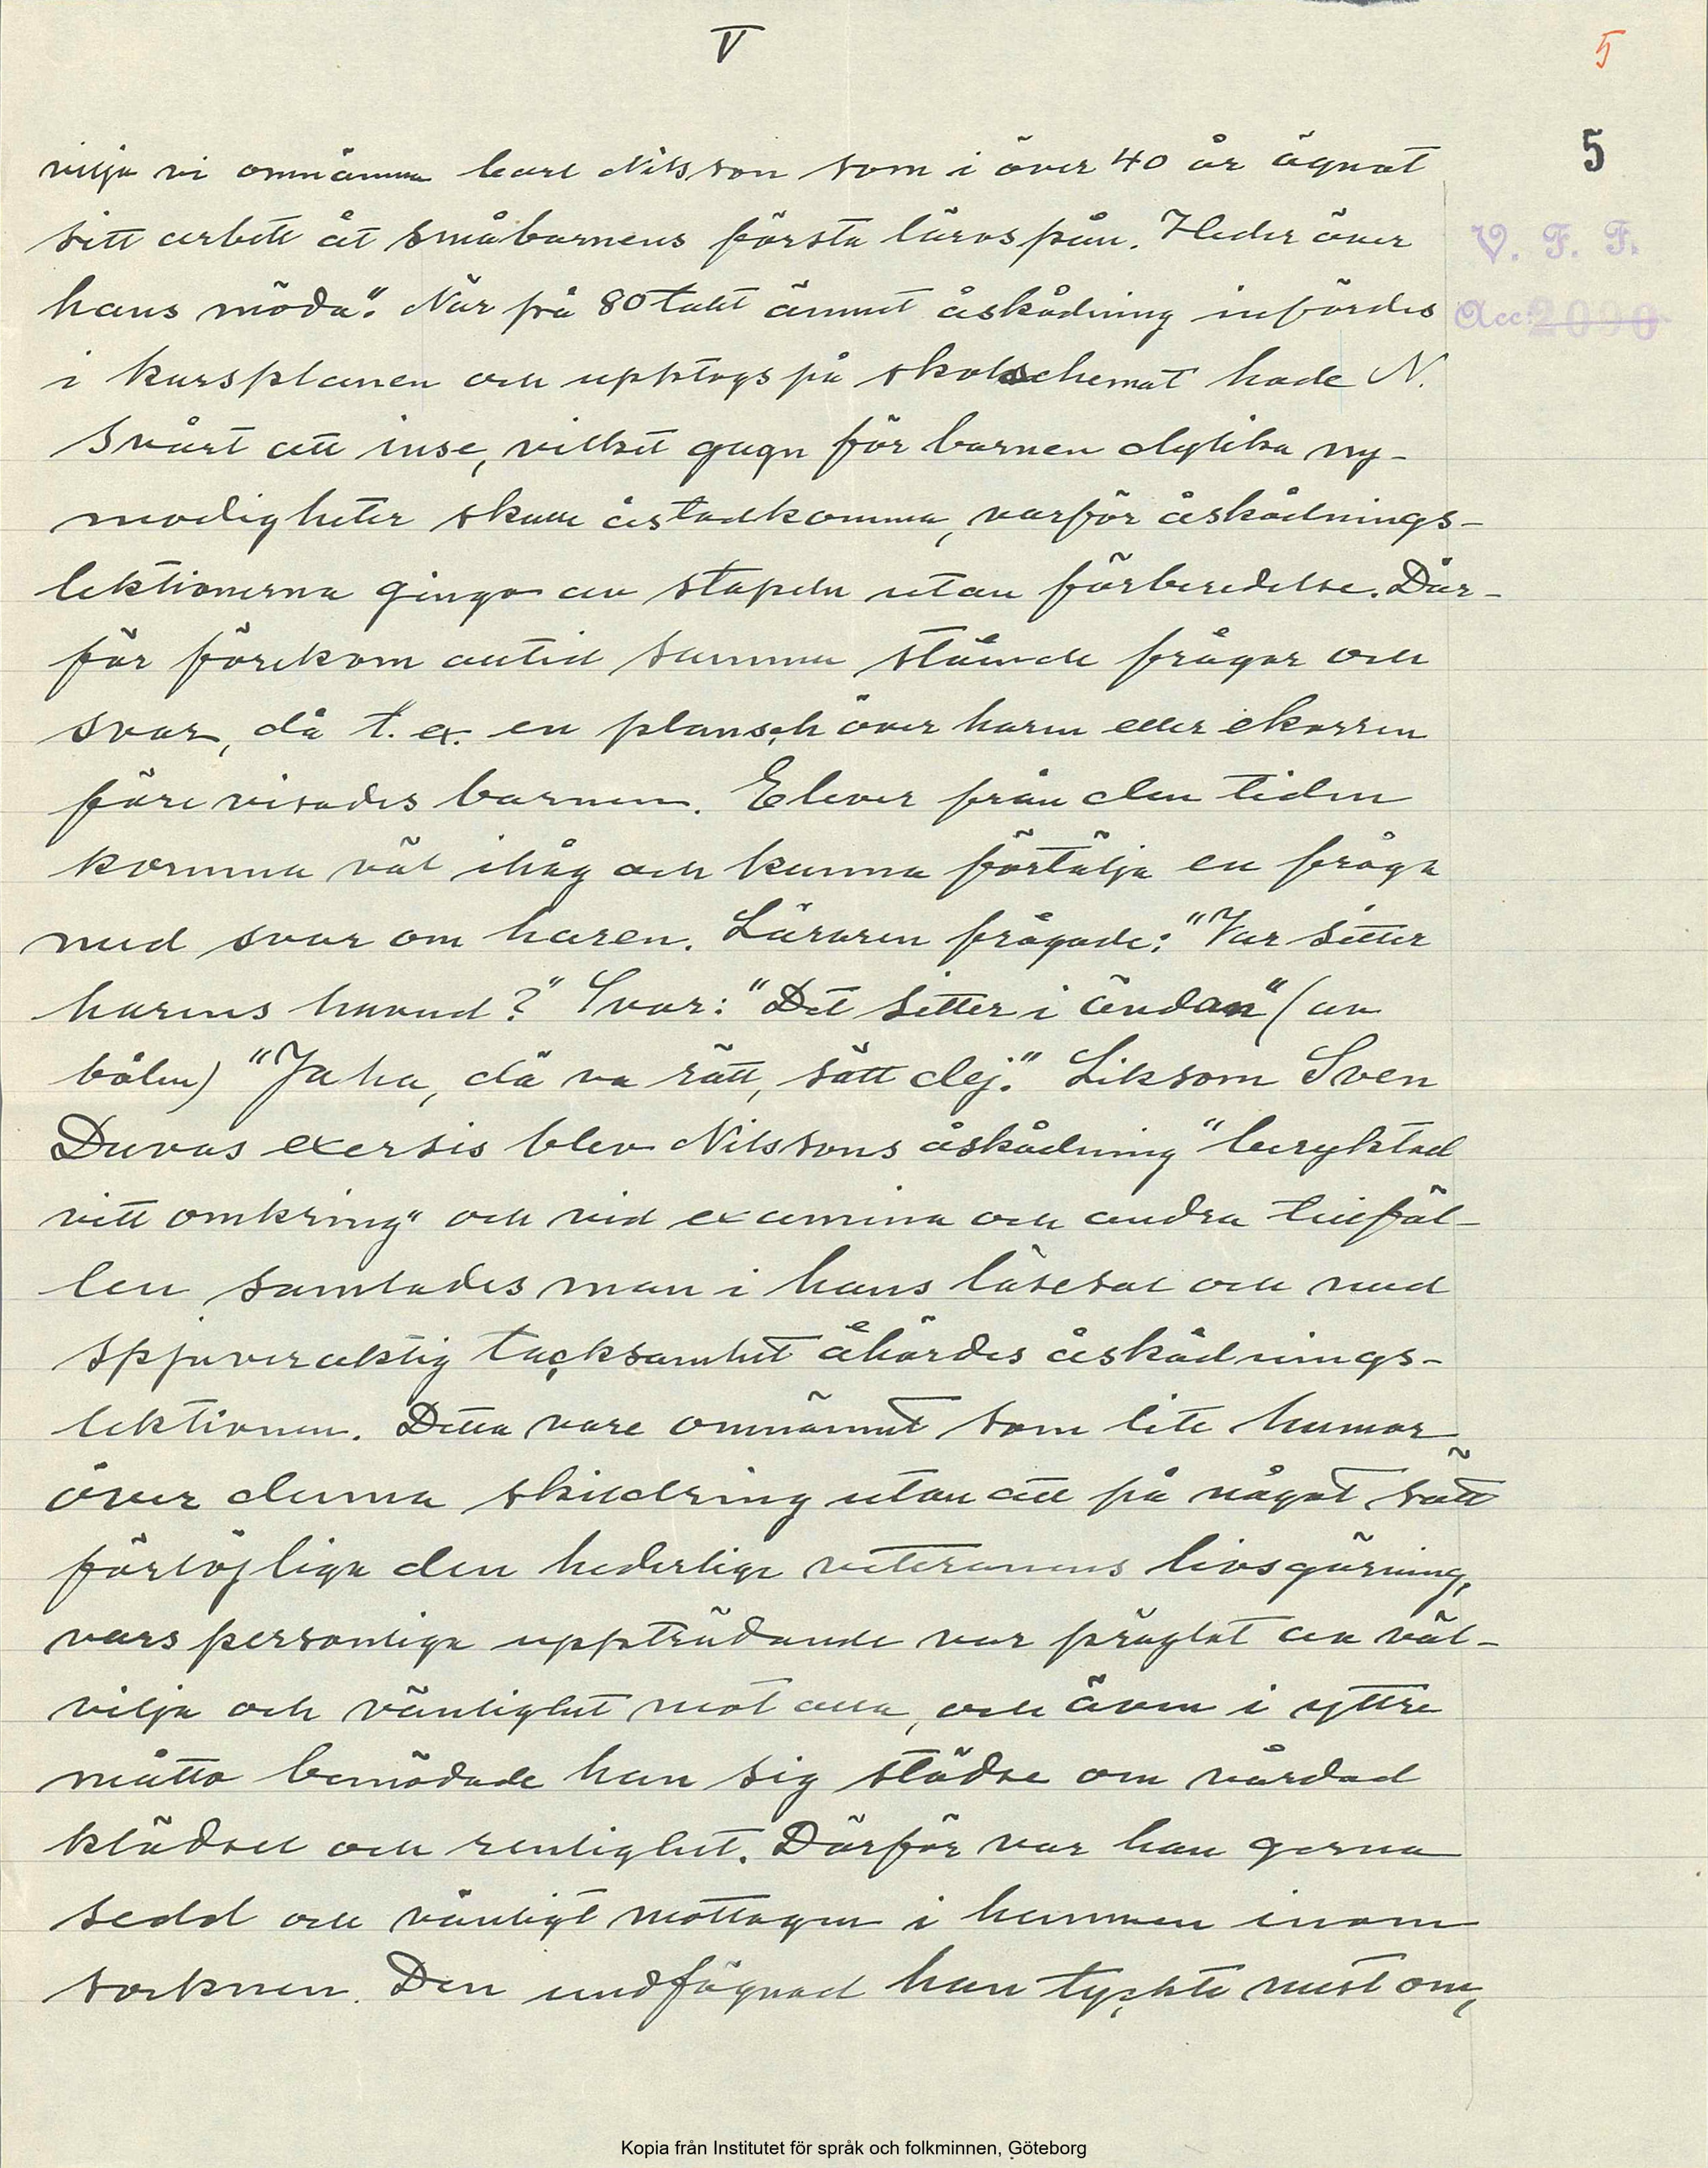 V
5
5
V. F. F.
Acc. 2090
vilja vi omnämna Karl Nilsson som i över 40 år ägnat
sitt arbete åt småbarnens första lärospån. Heder över
hans möda". När på 80 talet ämnet åskådning infördes
i kursplanen och upptogs på skolschemat hade N.
svårt att inse, vilket gagn för barnen dylika ny-
modigheter skulle åstadkomma, varför åskådnings-
lektionerna gingo av stapeln utan förberedelse. Där-
för förekom alltid samma stående frågor och
svar, då t. ex. en plansch över haren eller ekorren
förevisades barnen. Elever från den tiden
komma väl ihåg och kunna förtälja en fråga
med svar om haren. Läraren frågade: "Var sitter
harens huvud?" Svar: "Det sitter i ändan" (av
bålen) "Jaha, dä va rätt, sätt dej." Liksom Sven
Duvas exersis blev Nilssons åskådning "beryktad
vitt omkring" och vid examina och andra tillfäl-
len samlades man i hans lärosal och med
spjuveraktig tacksamhet åhördes åskådnings-
lektionen. Detta vare omnämnt som lite humor
över denna skildring utan att på något sätt
förlöjliga den hederlige veteranens livsgärning,
vars personliga uppträdande var präglat av väl-
vilja och vänlighet mot alla, och även i yttre
måtto bemödade han sig städse om vårdad
klädsel och renlighet. Därför var han gerna
sedd och vänligt mottagen i hemmen inom
socknen. Den undfägnad han tyckte mest om,
Kopia från Institutet för språk och folkminnen, Göteborg